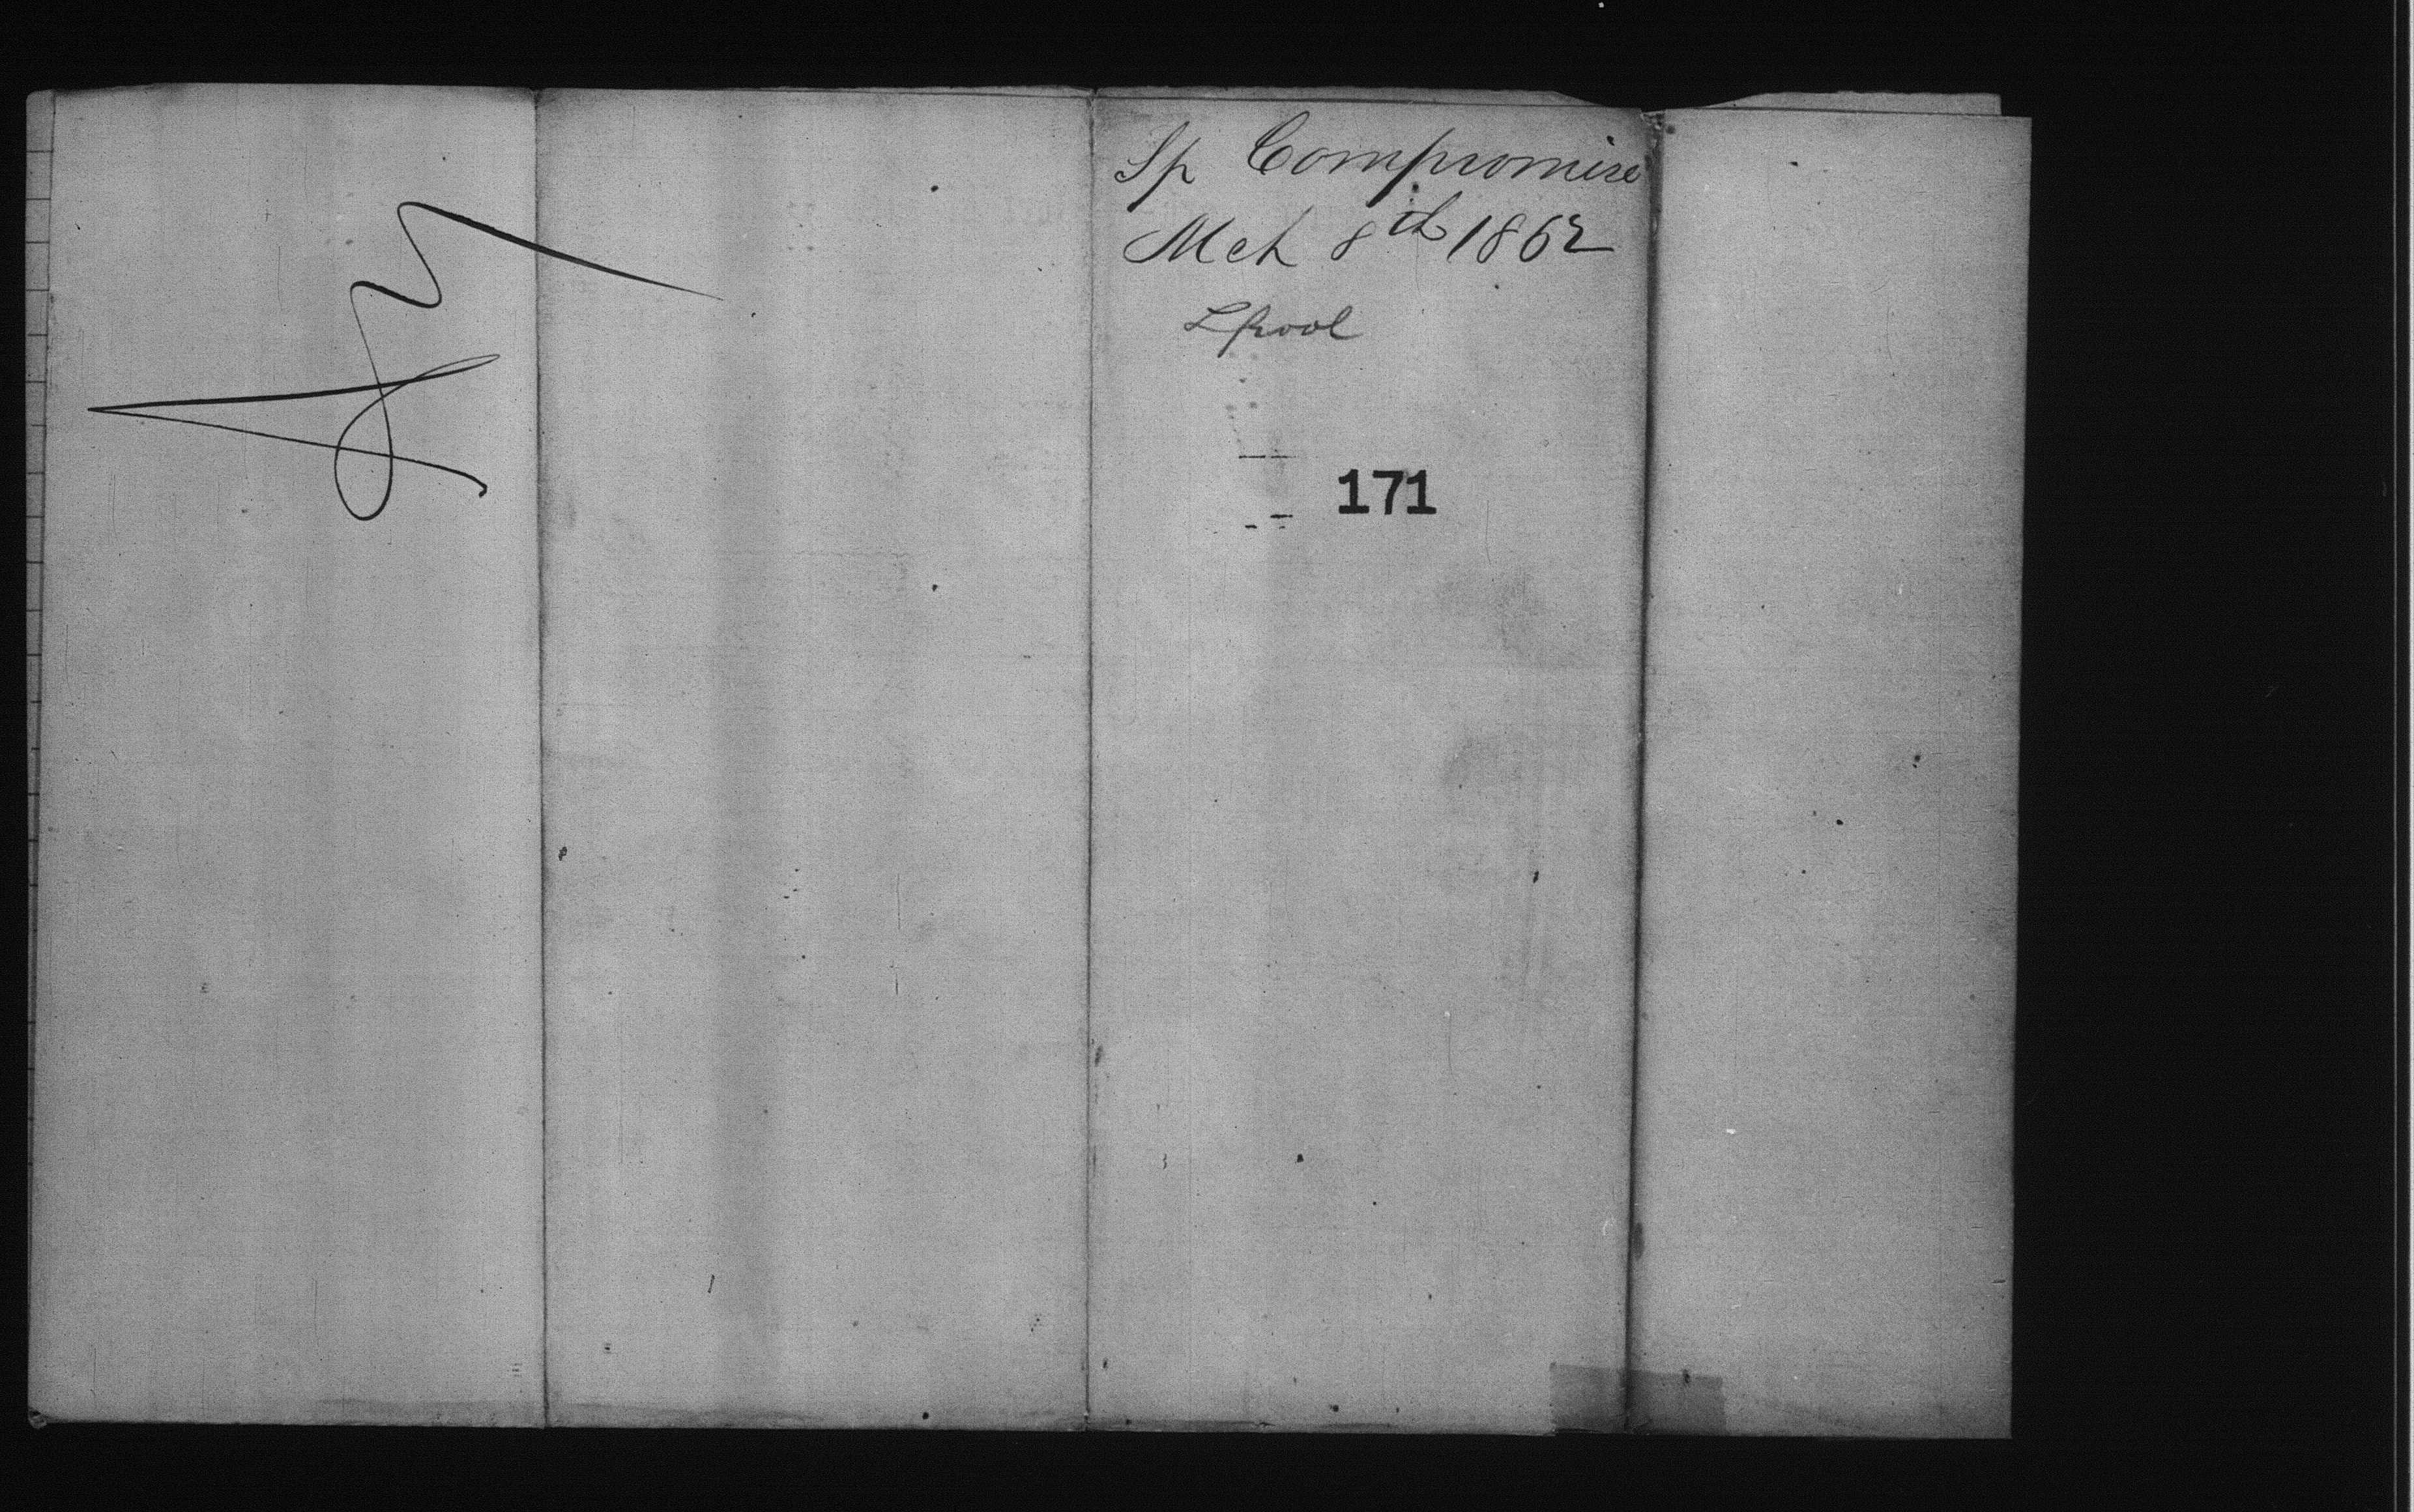 Sp Compromise
Mch 8th 1862
Lpool
171